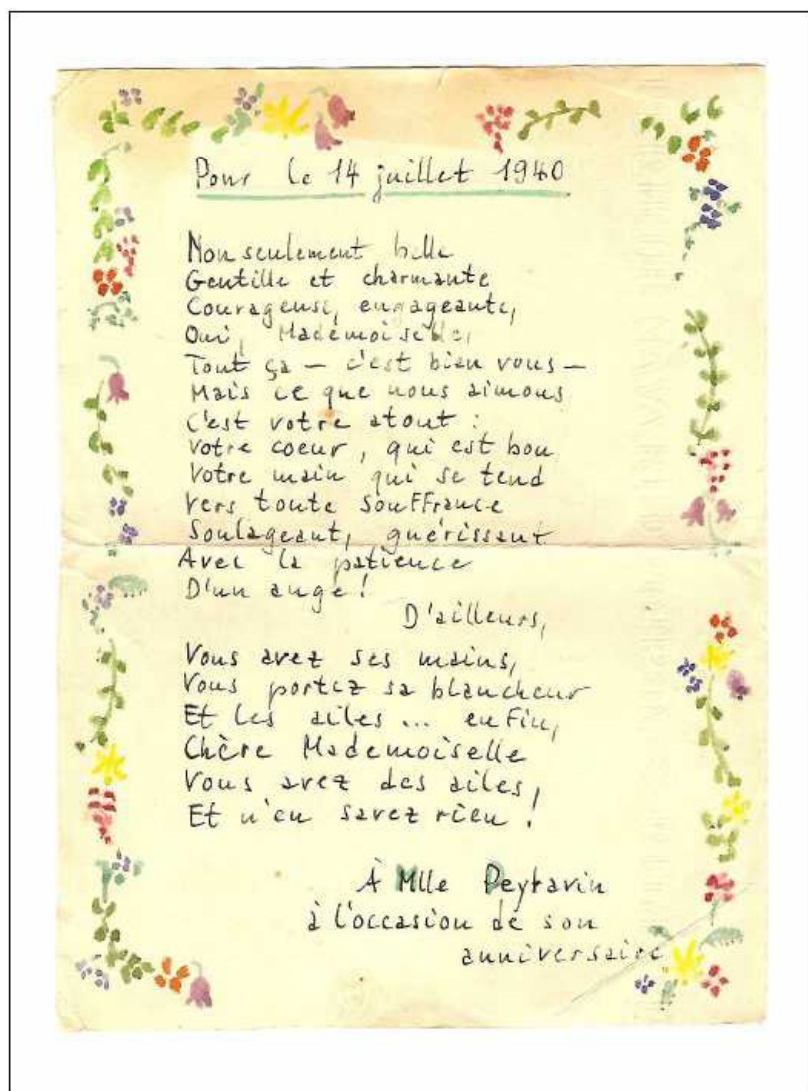 Pour le 14 juillet 1940
Non seulement belle
Gentille et charmante
Courageuse, engageante,
Oui, Mademoiselle,
Tout ça – c'est bien vous –
Mais ce que nous aimons
C'est votre atout :
Votre coeur, qui est bon
Votre main qui se tend
Vers toute souffrance
Soulageant, guérissant
Avec la patience
D'un ange !
D'ailleurs,
Vous avez ses mains,
Vous portez sa blancheur
Et les ailes ... enfin,
Chère Mademoiselle
Vous avez des ailes,
Et n'en savez rien !
À Mlle Peytavin
à l'occasion de son
anniversaire